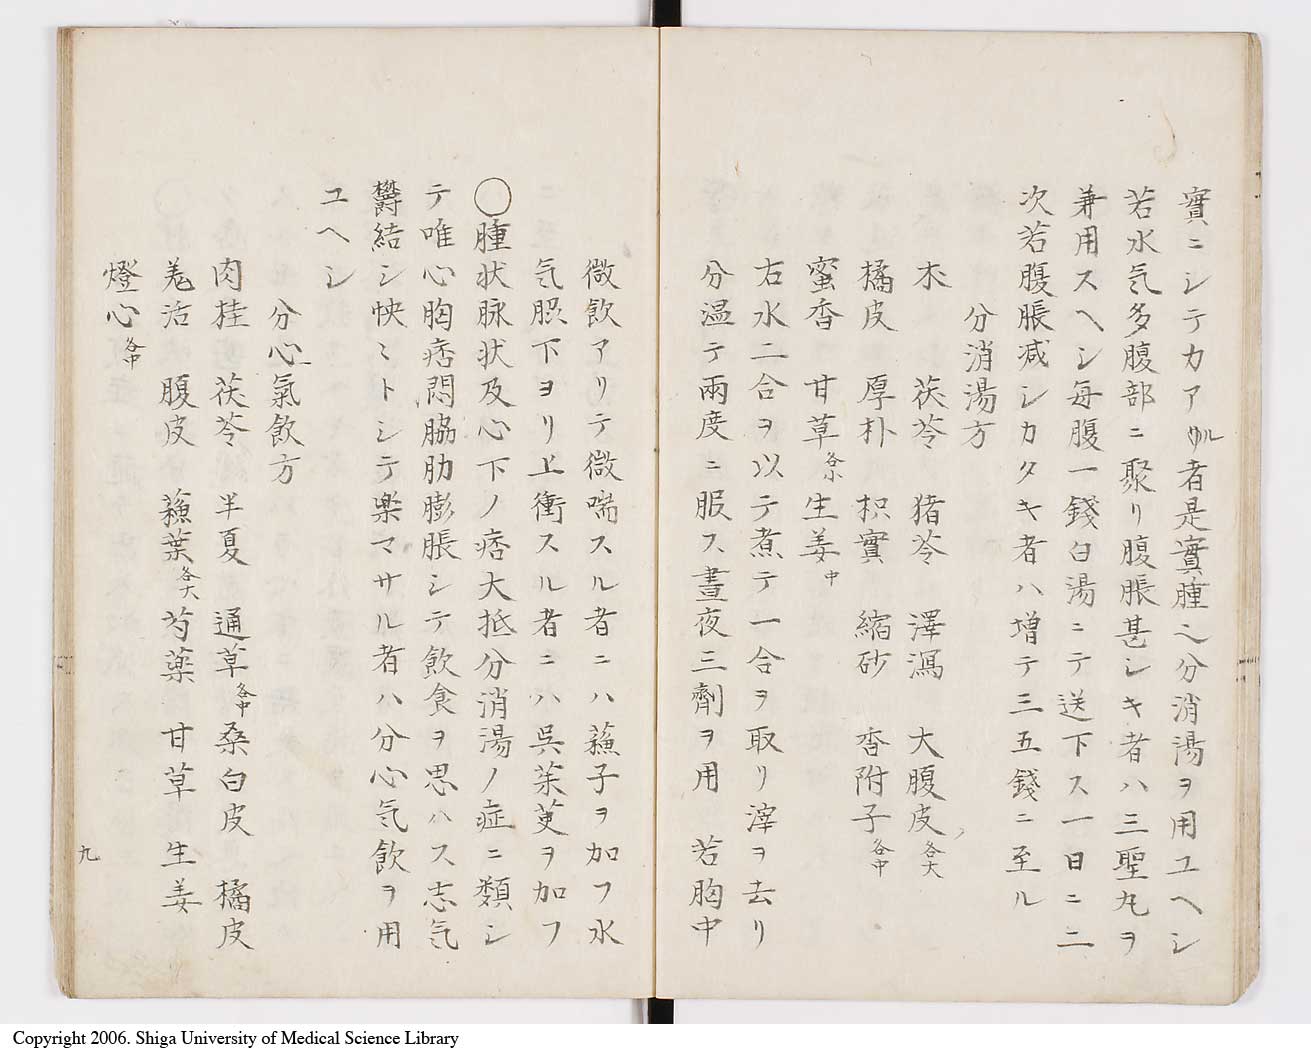 實ニシテカアル者是實腫ヘ分消湯ヲ用ユヘシ
若水気多腹部ニ聚リ腹脹甚シキ者ハ三聖丸ヲ
兼用スヘシ毎腹一錢白湯ニテ送下ス一日ニ二
次若腹脹减シカタキ者ハ増テ三五錢ニ至ル
分消湯方
朮 茯苓 猪苓 澤瀉 大腹皮各大
橘皮 厚朴 枳實 縮砂 香附子各中
蜜香 甘草各小 生姜中
右水二合ヲ以テ煮テ一合ヲ取リ滓ヲ去リ
分温テ兩度ニ服ス晝夜三劑ヲ用 若胸中
微飲アリテ微喘スル者ニハ蘓子ヲ加フ水
気臍下ヨリ上衝スル者ニハ呉茱萸ヲ加フ
〇腫状脉状及心下ノ痞大抵分消湯ノ症ニ類シ
テ唯心胸痞悶脇肋膨脹シテ飲食ヲ思ハス志気
欝結シ怏〻トシテ樂マサル者ハ分心気飲ヲ用
ユヘシ
分心氣飲方
肉桂 茯苓 半夏 通草各中 桑白皮 橘皮
羗活 腹皮 蘓葉各大 芍薬 甘草 生姜
燈心各中
九
Copyright 2006. Shiga University of Medical Science Library